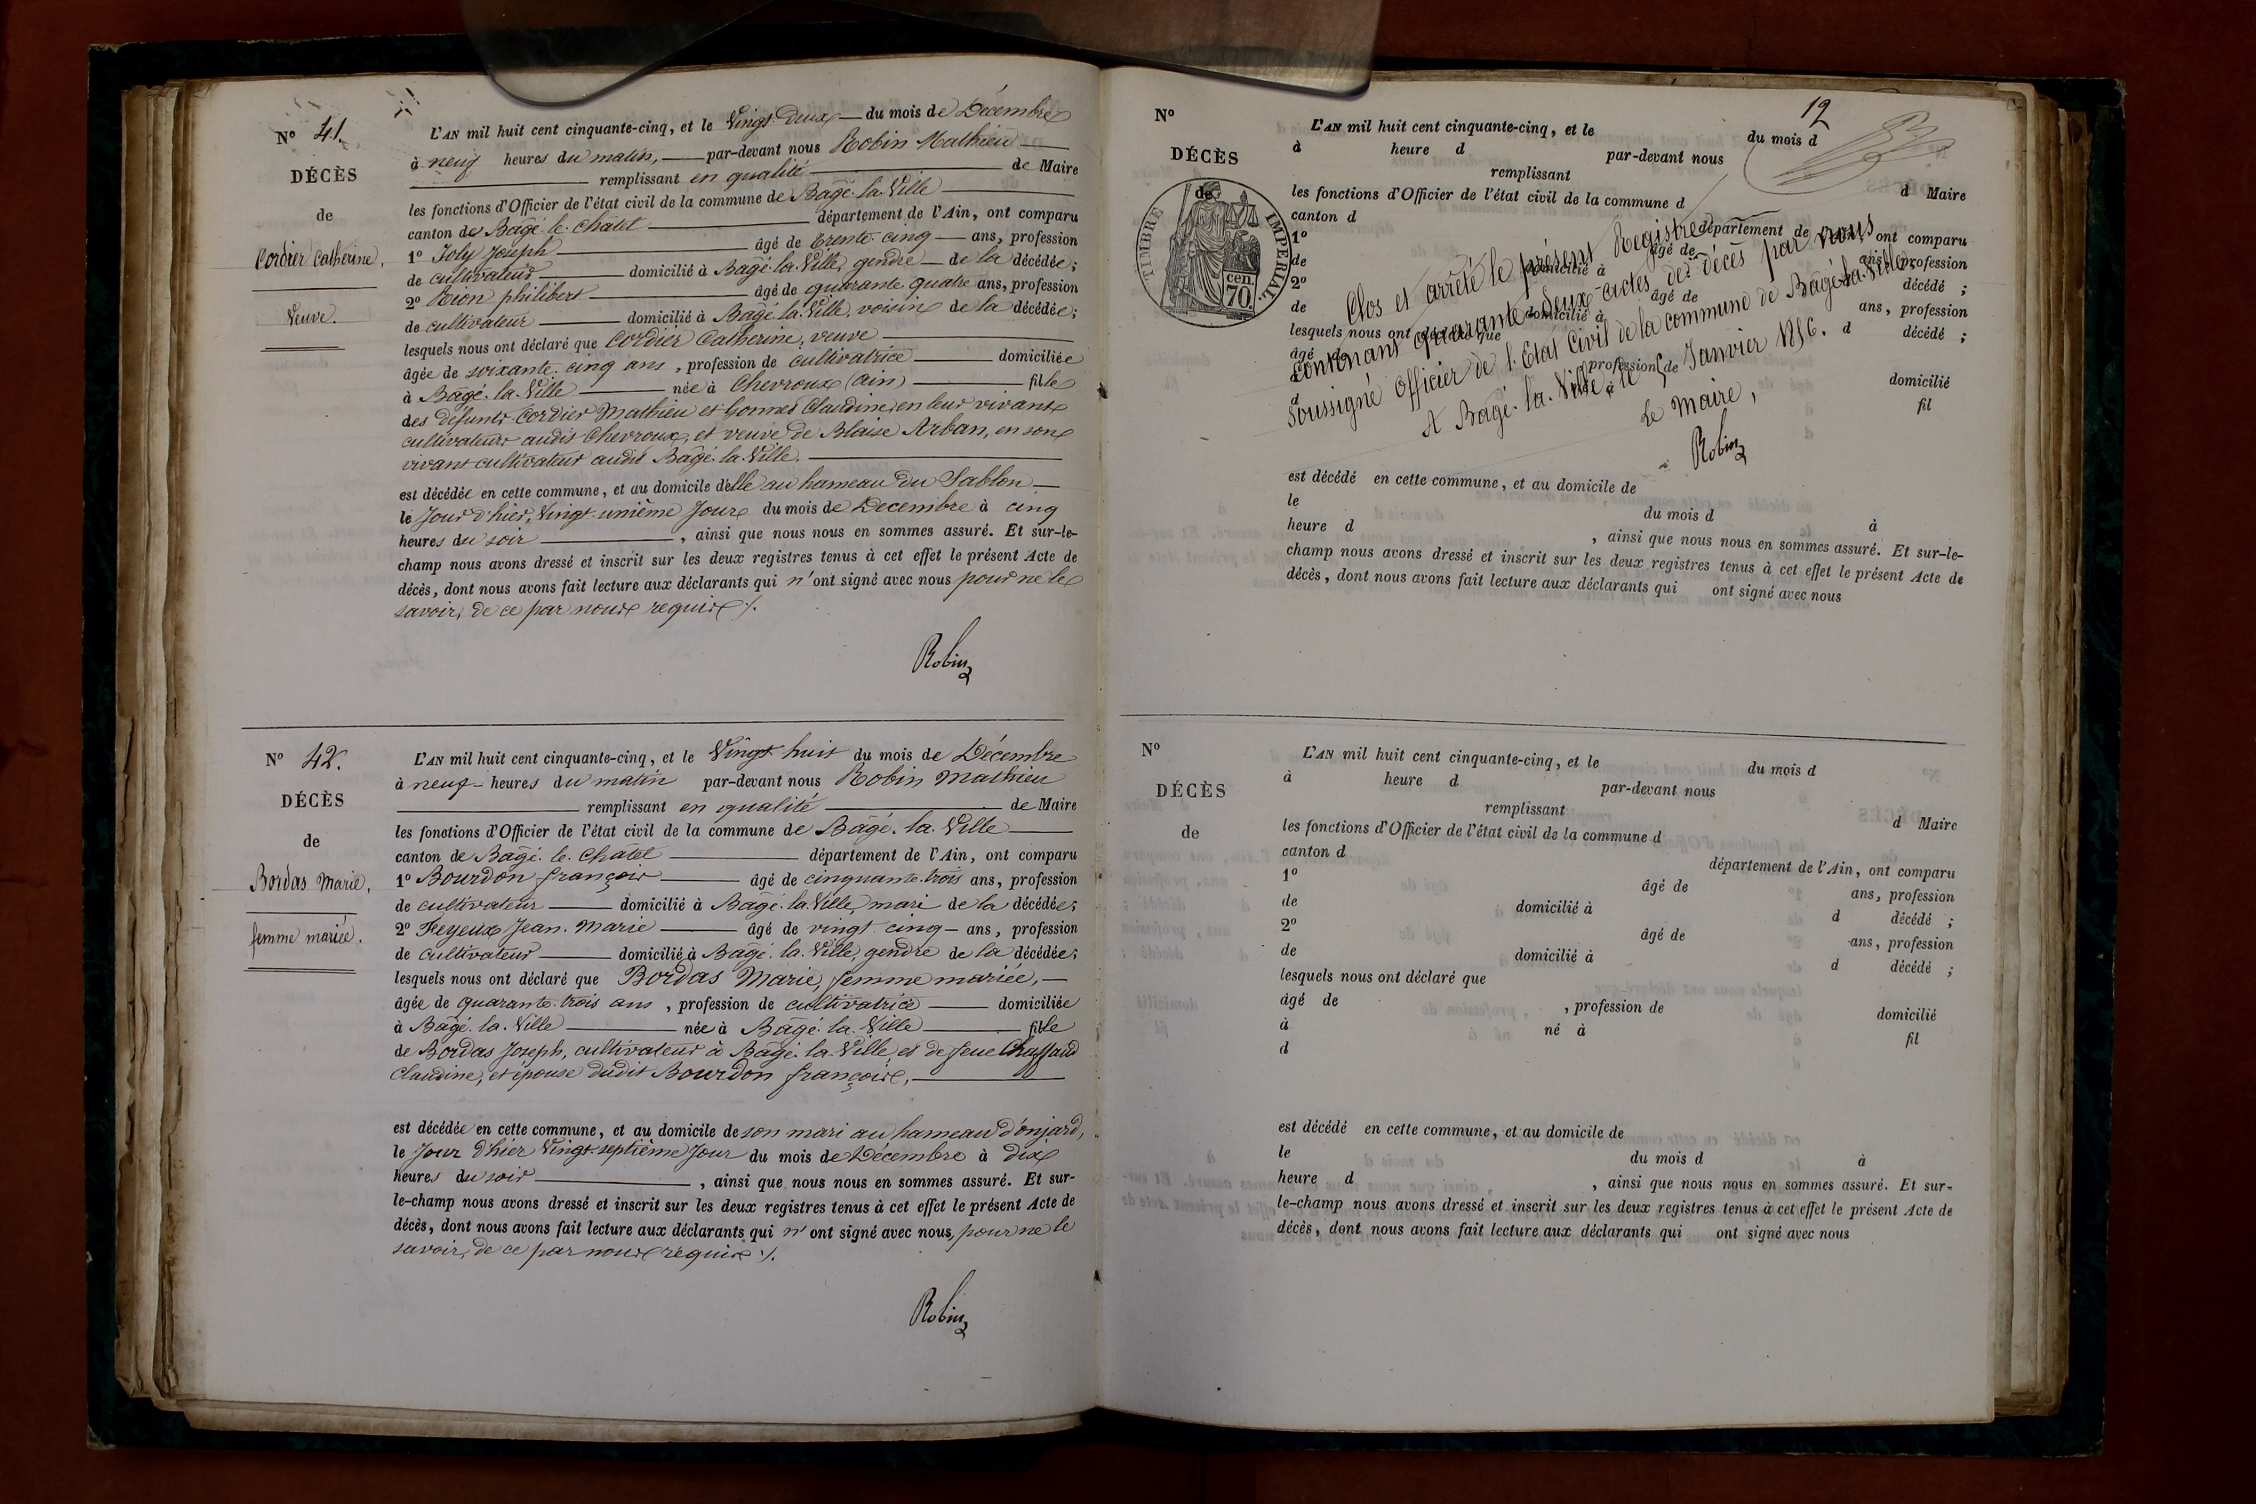 N° 41.
DÉCÈS
de
Cordier Catherine,
Veuve.
L'AN mil huit cent cinquante-cinq, et le Vingt deux du mois de Décembre
à neuf heures du matin, par-devant nous Robin Mathieu
remplissant en qualité de Maire
les fonctions d'Officier de l'état civil de la commune de Bâgé-la-Ville
canton de Bâgé-le-Châtel département de l'Ain, ont comparu
1° Joly Joseph âgé de trente-cinq ans, profession
de cultivateur domicilié à Bâgé-la-Ville, gendre de la décédée;
2° Rion philibert âgé de quarante quatre ans, profession
de cultivateur domicilié à Bâgé-la-Ville, voisin de la décédée;
lesquels nous ont déclaré que Cordier Catherine, veuve
âgée de soixante-cinq ans, profession de cultivatrice domiciliée
à Bâgé-la-Ville née à Chevroux (Ain) fille
des défunts Cordier Mathieu et Claudine, en leur vivant
cultivateurs audit Chevroux, et veuve de Blaise Arban, en son
vivant cultivateur audit Bâgé-la-Ville.
est décédée en cette commune, et au domicile d'elle au hameau du Sablon
le Jour d'hier, Vingt-unième Jour du mois de Décembre à cinq
heures du soir, ainsi que nous nous en sommes assuré. Et sur-le-
champ nous avons dressé et inscrit sur les deux registres tenus à cet effet le présent Acte de
décès, dont nous avons fait lecture aux déclarants qui n'ont signé avec nous pour ne le
savoir, de ce par nous requis ./.
Robin
N° 42.
DÉCÈS
de
Bordas Marie,
femme mariée.
L'AN mil huit cent cinquante-cinq, et le Vingt huit du mois de Décembre
à neuf heures du matin par-devant nous Robin Mathieu
remplissant en qualité de Maire
les fonctions d'Officier de l'état civil de la commune de Bâgé-la-Ville
canton de Bâgé-le-Châtel département de l'Ain, ont comparu
1° Bourdon françois âgé de cinquante-trois ans, profession
de cultivateur domicilié à Bâgé-la-Ville, mari de la décédée;
2° Feyeux Jean-Marie âgé de vingt-cinq ans, profession
de cultivateur domicilié à Bâgé-la-Ville, gendre de la décédée;
lesquels nous ont déclaré que Bordas Marie, femme mariée,
âgée de quarante-trois ans, profession de cultivatrice domiciliée
à Bâgé-la-Ville née à Bâgé-la-Ville fille
de Bordas Joseph, cultivateur à Bâgé-la-Ville, et de feue Chaffaud
Claudine, et épouse dudit Bourdon françois,
est décédée en cette commune, et au domicile de son mari au hameau d'onjard,
le Jour d'hier Vingt-septième Jour du mois de Décembre à dix
heures du soir, ainsi que nous nous en sommes assuré. Et sur-
le-champ nous avons dressé et inscrit sur les deux registres tenus à cet effet le présent Acte de
décès, dont nous avons fait lecture aux déclarants qui n'ont signé avec nous, pour ne le
savoir, de ce par nous requis ./.
Robin
12
N°
DÉCÈS
de
TIMBRE IMPERIAL.
70 cen.
L'AN mil huit cent cinquante-cinq, et le du mois d
à heure d par-devant nous
remplissant d Maire
les fonctions d'Officier de l'état civil de la commune d
canton d département de l'Ain, ont comparu
1° âgé de ans, profession
de domicilié à d décédé ;
2° âgé de ans, profession
de domicilié à d décédé ;
lesquels nous ont déclaré que
âgé de , profession de domicilié
à né à fil
d
Clos et arrêté le présent Registre
contenant quarante-deux actes de décès par nous
soussigné Officier de l'Etat Civil de la commune de Bâgé-la-Ville,
A Bâgé-la-Ville, le 5 Janvier 1856.
Le Maire,
Robin
est décédé en cette commune, et au domicile de
le du mois d à
heure d , ainsi que nous nous en sommes assuré. Et sur-le-
champ nous avons dressé et inscrit sur les deux registres tenus à cet effet le présent Acte de
décès, dont nous avons fait lecture aux déclarants qui ont signé avec nous
N°
DÉCÈS
de
L'AN mil huit cent cinquante-cinq, et le du mois d
à heure d par-devant nous
remplissant d Maire
les fonctions d'Officier de l'état civil de la commune d
canton d département de l'Ain, ont comparu
1° âgé de ans, profession
de domicilié à d décédé ;
2° âgé de ans, profession
de domicilié à d décédé ;
lesquels nous ont déclaré que
âgé de , profession de domicilié
à né à fil
d
est décédé en cette commune, et au domicile de
le du mois d à
heure d , ainsi que nous nous en sommes assuré. Et sur-
le-champ nous avons dressé et inscrit sur les deux registres tenus à cet effet le présent Acte de
décès, dont nous avons fait lecture aux déclarants qui ont signé avec nous